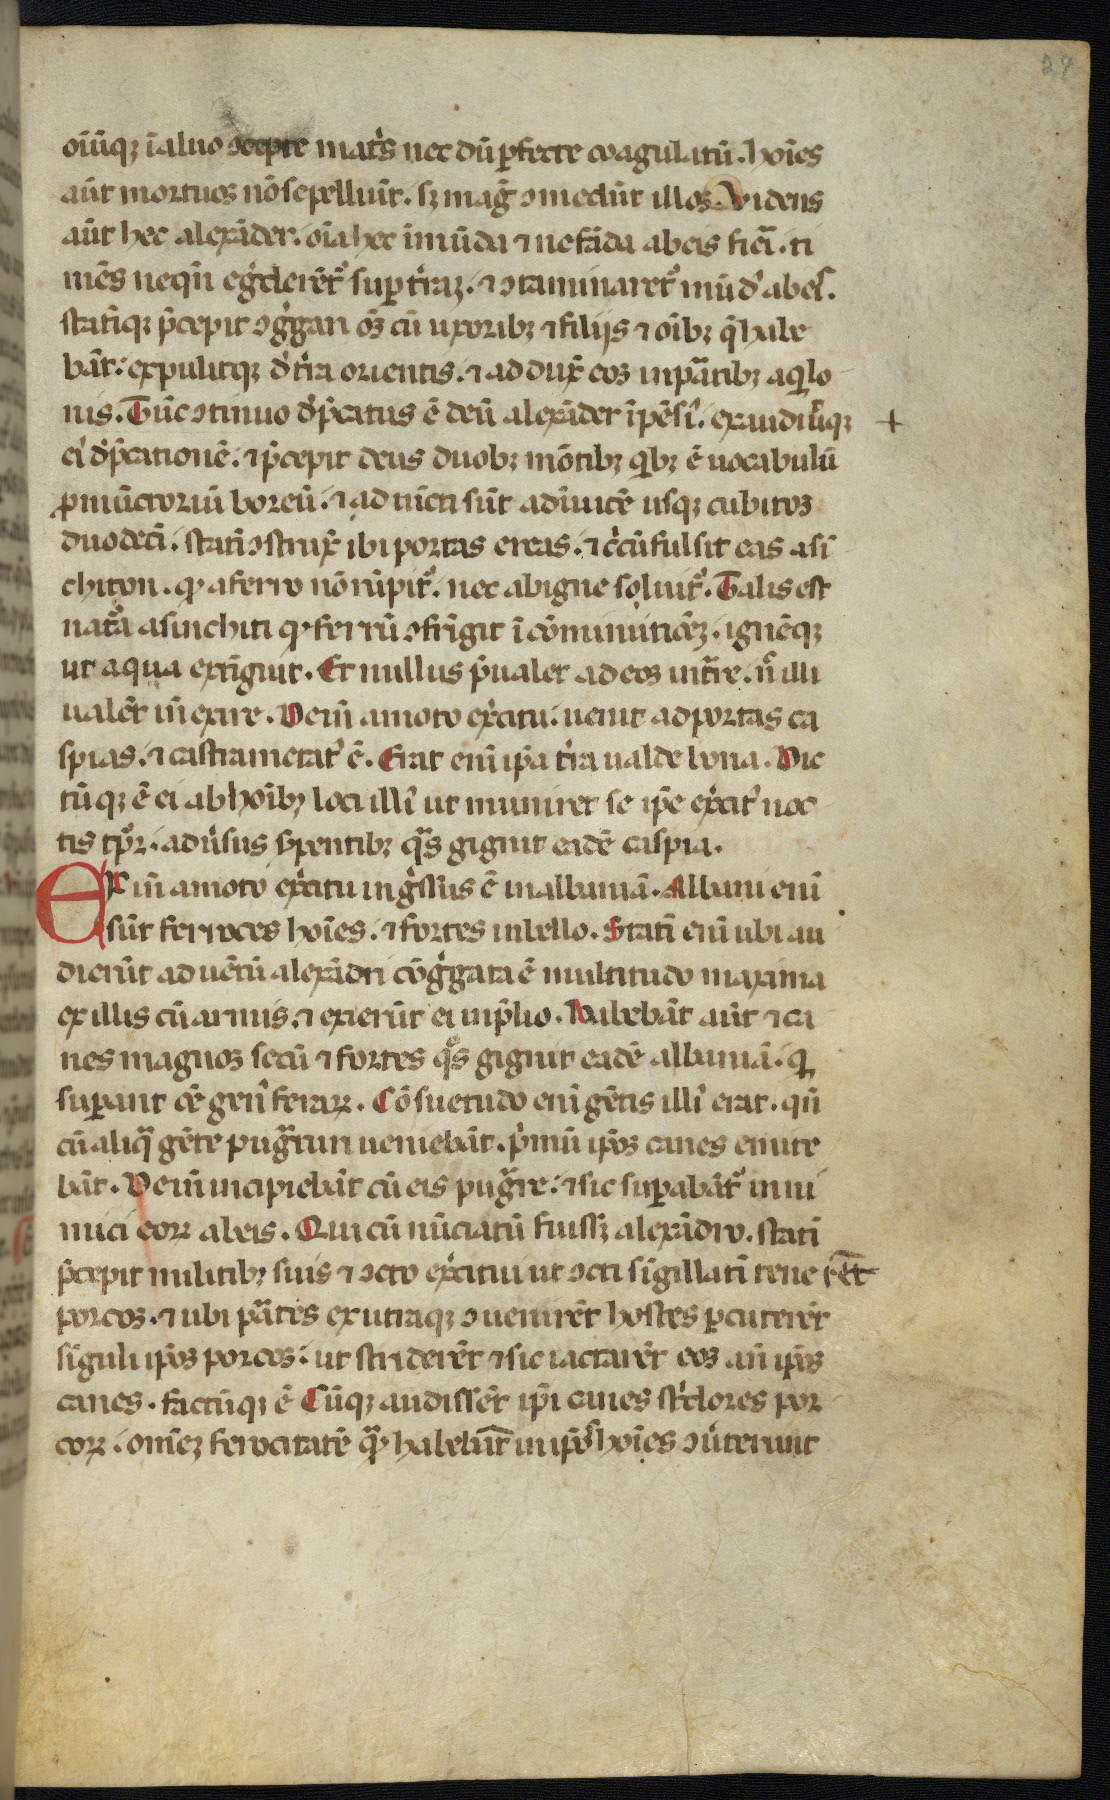 27
oīūqꝫ ī aluo ↄcepte mat̾s nec dū ꝑfecte coagulatū. hoīes
aūt mortuos nō sepelliūt. sꝫ mag̾ ↄmedūt illos. Videns
aūt hec alexāder. oīa hec īmūda ⁊ nefāda ab eis fiēi. ti
mēs neqn̄ eg̾derēt᷑ suꝑ t̾raꝫ. ⁊ ↄtaminaret᷑ mūd᷒ ab eis.
statīqꝫ p̄cepit ↄg̾gari oēs cū uxoribꝫ ⁊ filijs ⁊ oībꝫ q̄ habe
bāt. expulitqꝫ d̾ t̾ra orientis. ⁊ adduxͭ eos in ꝑatībꝫ aqⁱlo
nis. Tūc ↄtinuo d̾p̄catus ē deū alexāder īpēsi᷒. exaudiuitqꝫ
ei᷒ d̾p̄cationē. ⁊ p̄cepit deus duobꝫ mōtibꝫ qⁱbꝫ ē uocabulū
ꝓmūctoriū boreū. ⁊ adiūcti sūt adīuicē usqꝫ cubitos
duodeci̅. statī ↄstruxͭ ibi portas ereas. ⁊ c̾cūfulsit eas asi
chiton. qꝫ a ferro nō rūpit᷑. nec ab igne soluit᷑. Talis est
nat᷑a asinchiti qꝫ ferrū ↄfrīgit ī cōminuticōeꝫ. ignēqꝫ
ut aqua extīguit. Et nullus p̄ualet ad eos int̾re. n̄ illi
ualēt īn exire. Dein̄ amoto ex̾citu. uenit ad portas ca
spias. ⁊ castrametat᷒ ē. Erat eni̅ ip̄a t̾ra ualde bona. Dic
tūqꝫ ē ei ab hoībꝫ loci illi᷒ ut muniret se ip̄e ex̾cit᷒ noc
tis tp̄r. adu̾sus s̾pentibꝫ qᵃs gignit eadē caspia.
Ex in̄ amoto ex̾citu ing̾ssus ē in albaniā. Albani eni̅
sūt ferroces hoīes. ⁊ fortes in bello. Statī eni̅ ubi au
dierūt aduētū alexādri cōg̾gata ē multitudo maxima
ex illis cū armis. ⁊ exierūt ei in p̄lio. Habebāt aūt ⁊ ca
nes magnos secū ⁊ fortes qͦs gignit eadē albaniā. qꝫ
suꝑant oē gen᷒ ferarꝝ. Cōsuetudo eni̅ gētis illi᷒ erat. qn̄
cū aliqᵃ gēte pugᵃturi ueniebāt. p̄mū ip̄os canes emitte
bāt. Dein̄ incipiebāt cū eis pugᵃre. ⁊ sic suꝑabāt᷑ inimi
mici eorꝝ ab eis. Qui cū nūciatū fuissꝫ alexādro. statī
p̄cepit militibꝫ suis ⁊ ↄcto ex̾citui ut ↄcti sīgillatī tene rēt
porcos. ⁊ ubi ꝑātes ex utraqꝫ ↄuenirēt hostes ꝑcuterēt
sīguli ip̄os porcos. ut striderēt ⁊ sic iactarēt eos an̄ ip̄os
canes. factūqꝫ ē Cūqꝫ audissēt ip̄i canes st̾dores por
corꝝ. omēꝫ ferocitatē qᵃ habebūt in ip̄os hoīes ↄu̾terunt